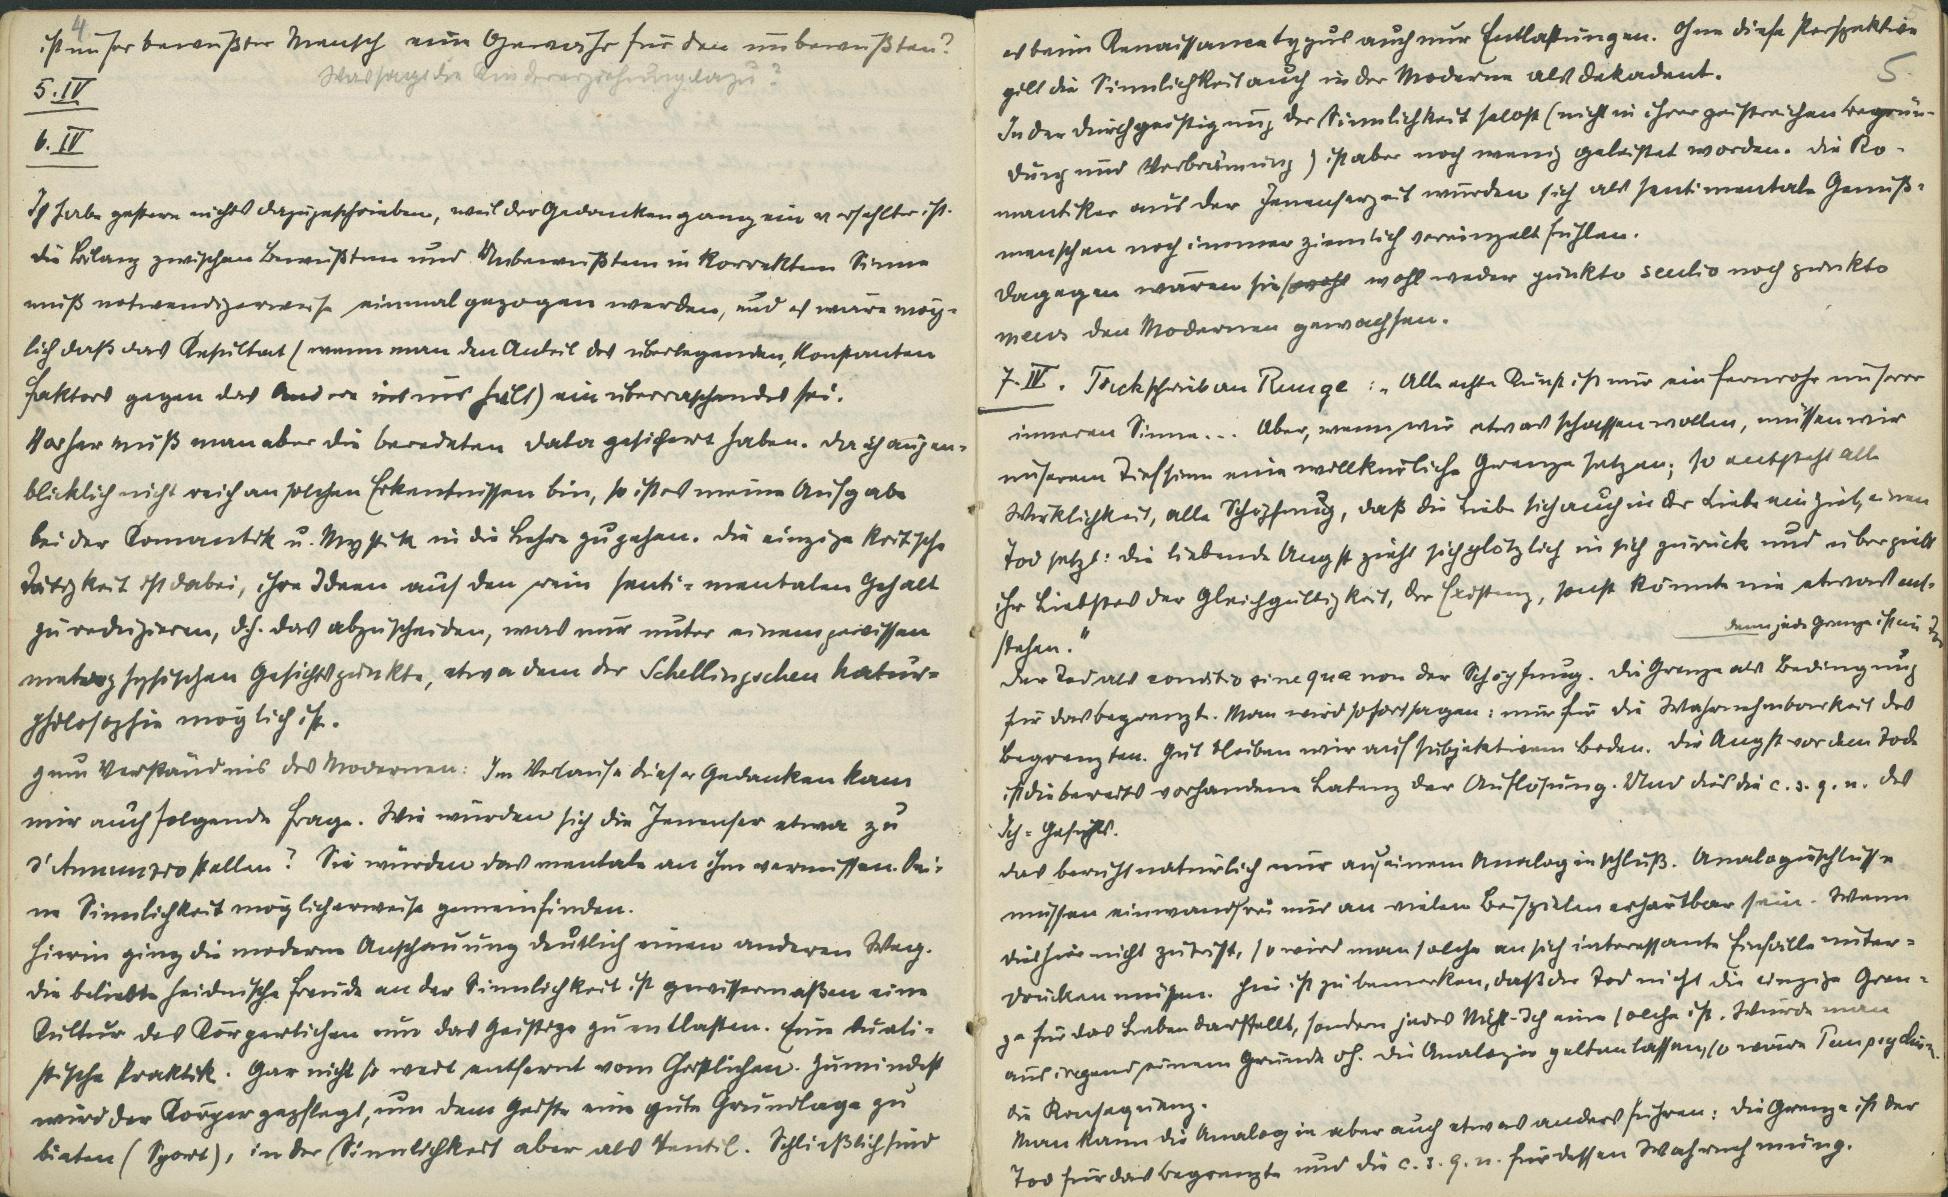 4
ist unser bewußter Mensch eine Gewähr für den unbewußten?
Was sagt die Kindererziehung dazu?
5. IV
6. IV
Ich habe gestern nichts dazugeschrieben, weil der Gedankengang ein verfehlter ist.
Die Bilanz zwischen Bewußtem und Unbewußtem in korrektem Sinne
muß notwendigerweise einmal gezogen werden, und es wäre mög-
lich daß das Resultat (wenn man den Anteil des überlegenden, konstanten
Faktors gegen das Andere in uns hält) ein überraschendes sei.
Vorher muß man aber die beredeten Data gesichert haben. Da ich augen-
blicklich nicht reich an solchen Erkentnissen bin, so ist es meine Aufgabe
bei der Romantik u. Mystik in die Lehre zu gehen. Die einzige kritische
Tätigkeit ist dabei, ihre Ideen auf den rein senti-mentalen Gehalt
zu reduzieren, d.h. das abzuscheiden, was nur unter einem gewissen
metaphysischen Gesichtspunkte, etwa dem der Schellingschen Natur-
philosophie möglich ist.
Zum Verständnis des Modernen: Im Verlaufe dieser Gedanken kam
mir auch folgende Frage. Wie würden sich die Jenenser etwa zu
d'Annunzio stellen? Sie würden das mentale an ihm vermissen. Sei-
ne Sinnlichkeit möglicherweise gemein finden.
Hierin ging die moderne Anschauung deutlich einen anderen Weg.
Die beliebte heidnische Freude an der Sinnlichkeit ist gewissermaßen eine
Kultur des Körperlichen um das Geistige zu entlasten. Eine duali-
stische Praktik. Gar nicht so weit entfernt vom Christlichen. Zumindest
wird der Körper gepflegt, um dem Geiste eine gute Grundlage zu
bieten (Sport), in der Sinnlichkeit aber als Ventil. Schließlich sind
5
es beim Renaissancetypus auch nur Entlastungen. Ohne diese Perspektive
gilt die Sinnlichkeit auch in der Moderne als dekadent.
In der Durchgeistigung der Sinnlichkeit selbst (nicht in ihrer geistreichen Begrün-
dung und Verbrämung) ist aber noch wenig geleistet worden. Die Ro-
mantiker aus der Jenenserzeit würden sich als sentimentale Genuß-
menschen noch immer ziemlich vereinzelt fühlen.
Dagegen wären sie wohl weder punkto sentio noch punkto
mens den Modernen gewachsen.
7. IV. Tieck schreibt an Runge: „Alle echte Kunst ist nur ein Fernrohr unserer
inneren Sinne... Aber, wenn wir etwas schaffen wollen, müssen wir
unserem Tiefsinn eine willkürliche Grenze setzen; so entsteht alle
Wirklichkeit, alle Schöpfung, daß die Liebe sich auch in der Liebe ein Ziel, einen
Tod setzt: die liebende Angst zieht sich plötzlich in sich zurück und übergiebt
ihr Liebstes der Gleichgültigkeit, der Existenz, sonst könnte nie etwas ent-
stehen."
denn jede Grenze ist ein Tod
Der Tod als conditio sine qua non der Schöpfung. Die Grenze als Bedingung
für das begrenzte. Man wird sofort sagen: nur für die Wahrnehmbarkeit des
Begrenzten. Gut bleiben wir auf subjektivem Boden. Die Angst vor dem Tode
ist die bereits vorhandene Latenz der Auflösung. Und dies die c. s. q. n. des
Ich-Gefühls.
Das beruht natürlich nur auf einem Analogieschluß. Analogieschlüsse
müssen einwandfrei nur an vielen Beispielen erhärtbar sein. Wenn
dies hier nicht zutrifft, so wird man solche an sich interessante Einfälle unter-
drücken müssen. Hier ist zu bemerken, daß der Tod nicht die einzige Gren-
ze für das Leben darstellt, sondern jedes Nicht-Ich eine solche ist. Würde man
aus irgend einem Grunde obige die Analogien gelten lassen, so wäre
die Konsequenz.
Man kann die Analogie aber auch etwas anders führen: die Grenze ist der
Tod für das begrenzte und die c. s. q. n. für dessen Wahrnehmung.